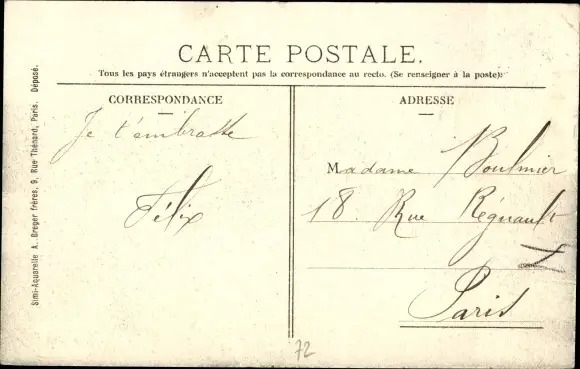 CARTE POSTALE.
Tous les pays étrangers n'acceptent pas la correspondance au recto. (Se renseigner à la poste):
CORRESPONDANCE
Je t'embrasse
Félix
ADRESSE
Madame Boulmier
18. Rue Régnault
Paris
72
Simi-Aquarelle A. Breger frères, 9, Rue Thénard, Paris. Déposé.